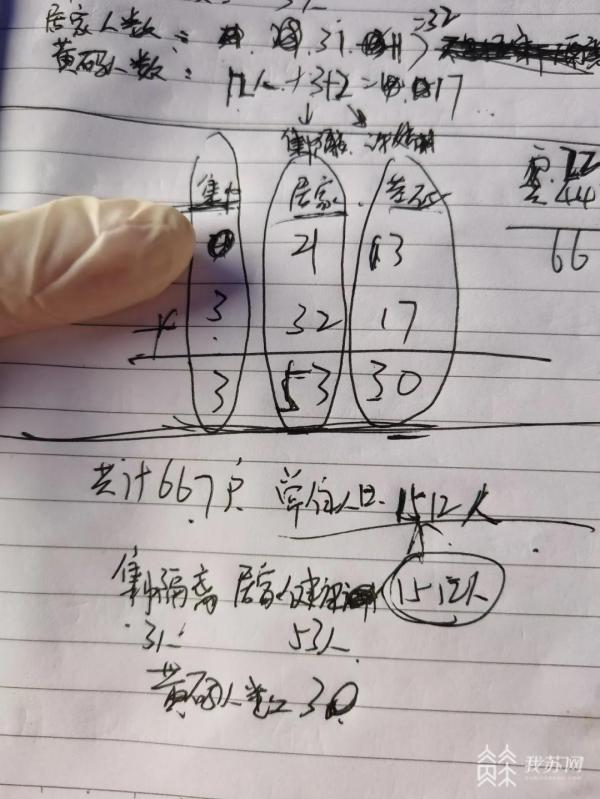 居家人数: 31 =32
黄码人数: 12人+3+2= 17
集中 居家 黄码
0 21 13
44
66
3 32 17
+
3 53 30
共计667户 常住人口 1512人
集中隔离 居家健康 1512人
3人 53人
黄码人数 30
我苏网